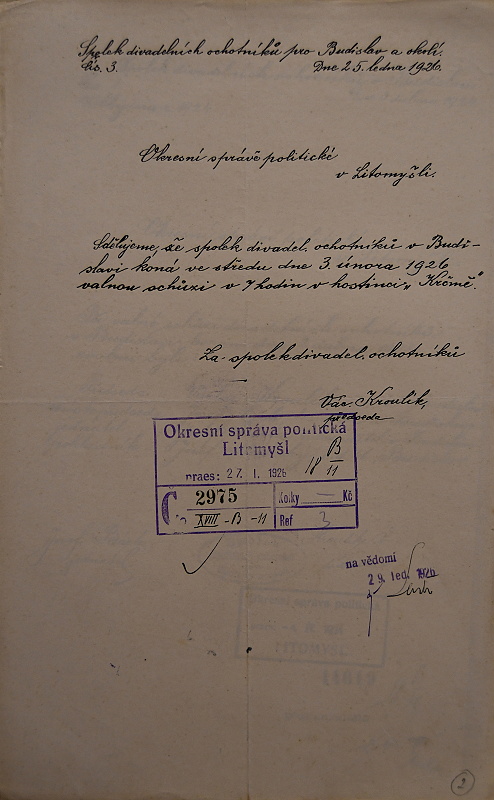 Spolek divadelních ochotníků pro Budislav a okolí.
Čís. 3. Dne 25. ledna 1926.
Okresní správě politické
v Litomyšli.
Sdělujeme, že spolek divadel. ochotníků v Budi-
slavi koná ve středu dne 3. února 1926
valnou schůzi v 7 hodin v hostinci „Krčmě."
Za spolek divadel. ochotníků
Vác. Kroulík,
předseda
Okresní správa politická
Litomyšl
praes: 27. I. 1926
18 B/11
Č 2975
XVIII - B - 11
Kolky — Kč
Ref 3
na vědomí
29. led. 1926
2